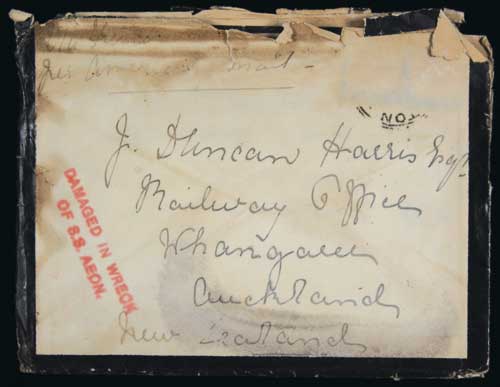 per American mail -
NO
J. Duncan Harris Esqr
Railway Office
Whangarei
Auckland
New Zealand
DAMAGED IN WRECK
OF S.S. AEON.